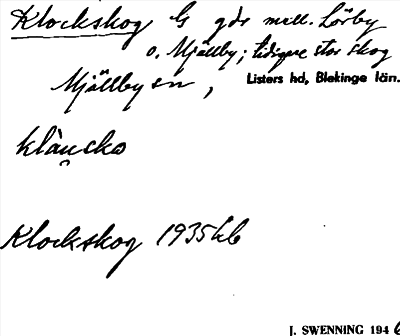 Klockskog G gdr mell. Lörby
o. Mjällby; tidigare stor skog
Mjällby sn, Listers hd, Blekinge län.
Klockskog 1935 kb
J. SWENNING 1946